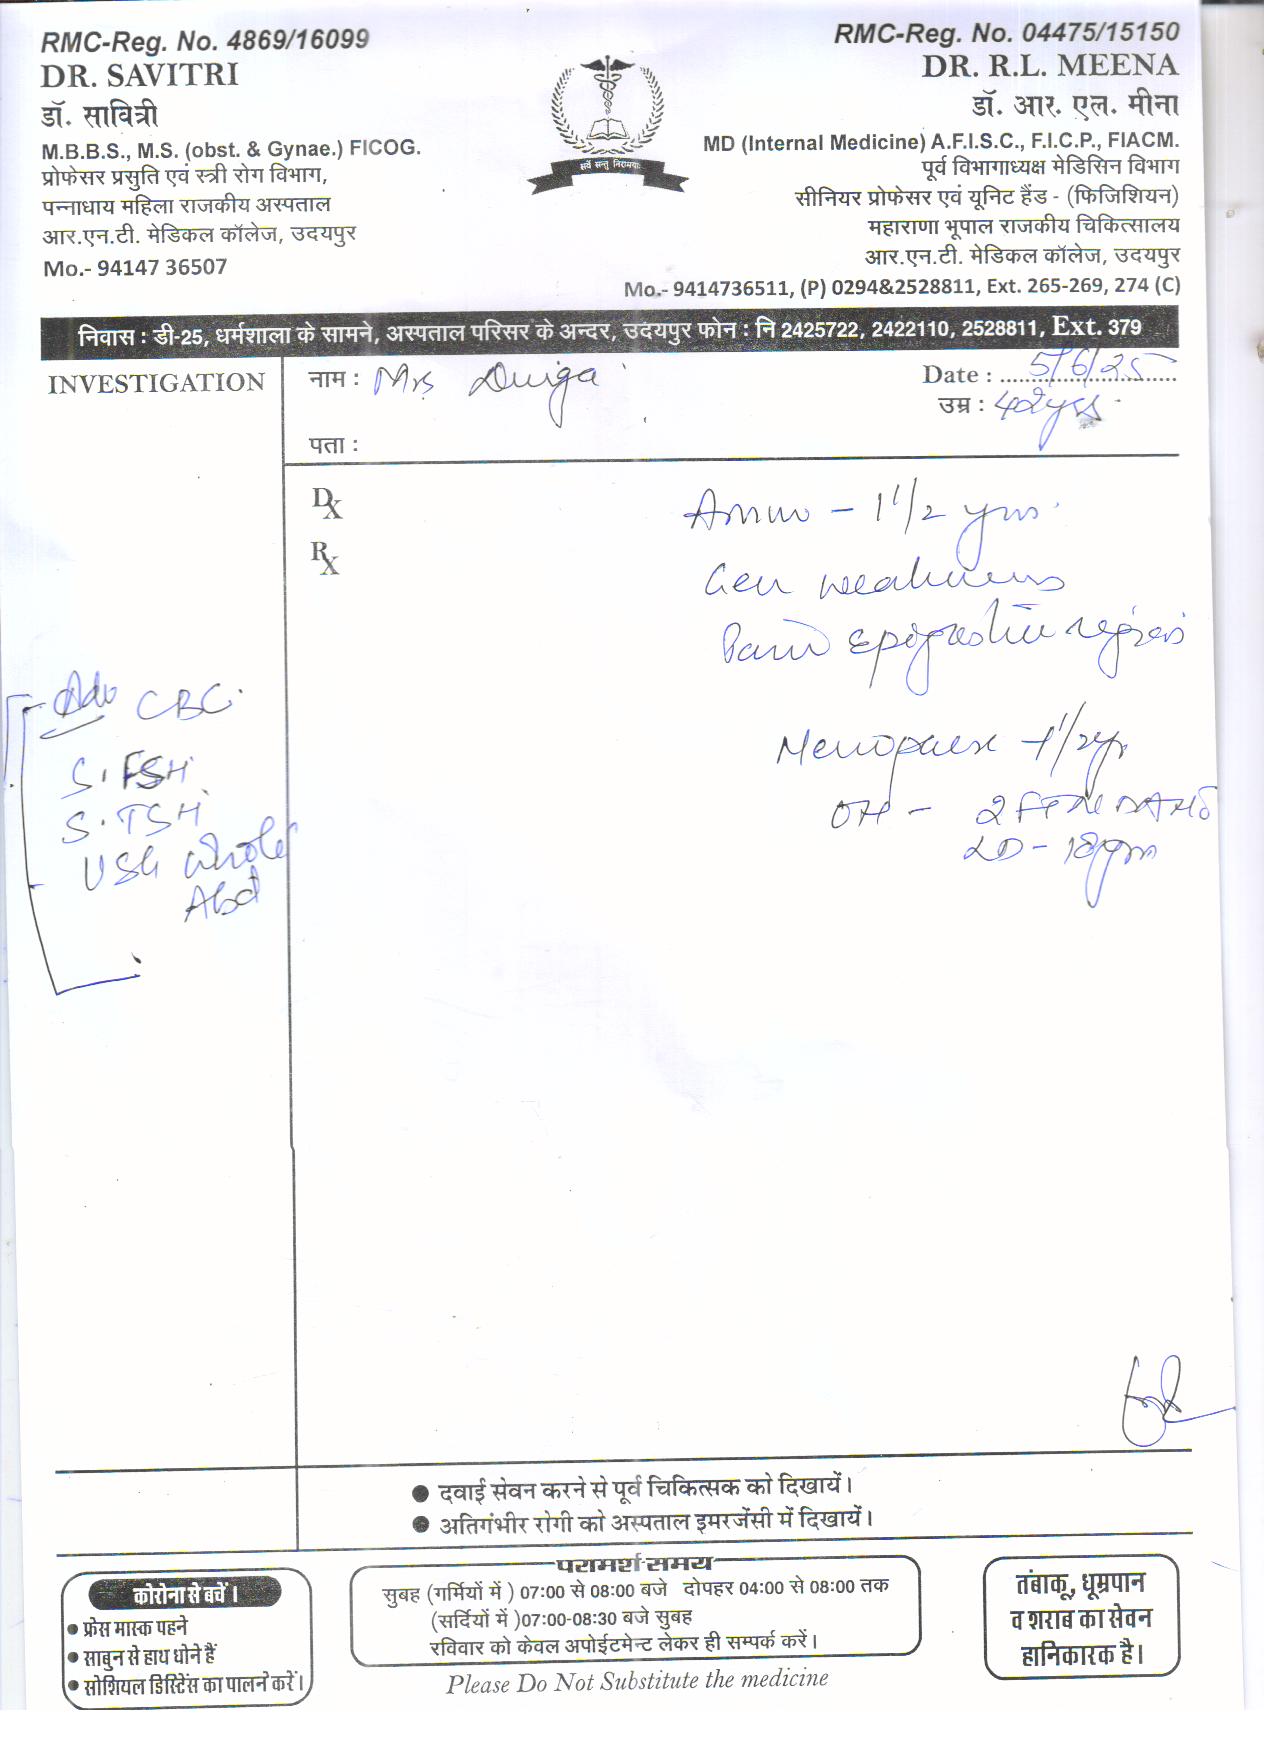 RMC-Reg. No. 4869/16099
DR. SAVITRI
डॉ. सावित्री
M.B.B.S., M.S. (obst. & Gynae.) FICOG.
प्रोफेसर प्रसुति एवं स्त्री रोग विभाग,
पन्नाधाय महिला राजकीय अस्पताल
आर.एन.टी. मेडिकल कॉलेज, उदयपुर
Mo.- 94147 36507
सर्वे सन्तु निरामयाः
RMC-Reg. No. 04475/15150
DR. R.L. MEENA
डॉ. आर. एल. मीना
MD (Internal Medicine) A.F.I.S.C., F.I.C.P., FIACM.
पूर्व विभागाध्यक्ष मेडिसिन विभाग
सीनियर प्रोफेसर एवं यूनिट हैंड - (फिजिशियन)
महाराणा भूपाल राजकीय चिकित्सालय
आर.एन.टी. मेडिकल कॉलेज, उदयपुर
Mo.- 9414736511, (P) 0294&2528811, Ext. 265-269, 274 (C)
निवास : डी-25, धर्मशाला के सामने, अस्पताल परिसर के अन्दर, उदयपुर फोन : नि 2425722, 2422110, 2528811, Ext. 379
INVESTIGATION
नाम : Mrs Durga
Date : 5/6/25
उम्र : 42yrs
पता :
Dx
Rx
- 1 1/2 yrs
Gen weakness
Pain epigastric region
Menopause - 1 1/2 yr
OH - 2 FTND
LD - 18yrs
Adv CBC
S. FSH
S. TSH
USG whole
Abd
● दवाई सेवन करने से पूर्व चिकित्सक को दिखायें।
● अतिगंभीर रोगी को अस्पताल इमरजेंसी में दिखायें।
कोरोना से बचें।
● फ्रेस मास्क पहने
● साबुन से हाथ धोने हैं
● सोशियल डिस्टेंस का पालने करें।
परामर्श समय
सुबह (गर्मियों में ) 07:00 से 08:00 बजे दोपहर 04:00 से 08:00 तक
(सर्दियों में )07:00-08:30 बजे सुबह
रविवार को केवल अपोईटमेन्ट लेकर ही सम्पर्क करें।
Please Do Not Substitute the medicine
तंबाकू, धूम्रपान
व शराब का सेवन
हानिकारक है।